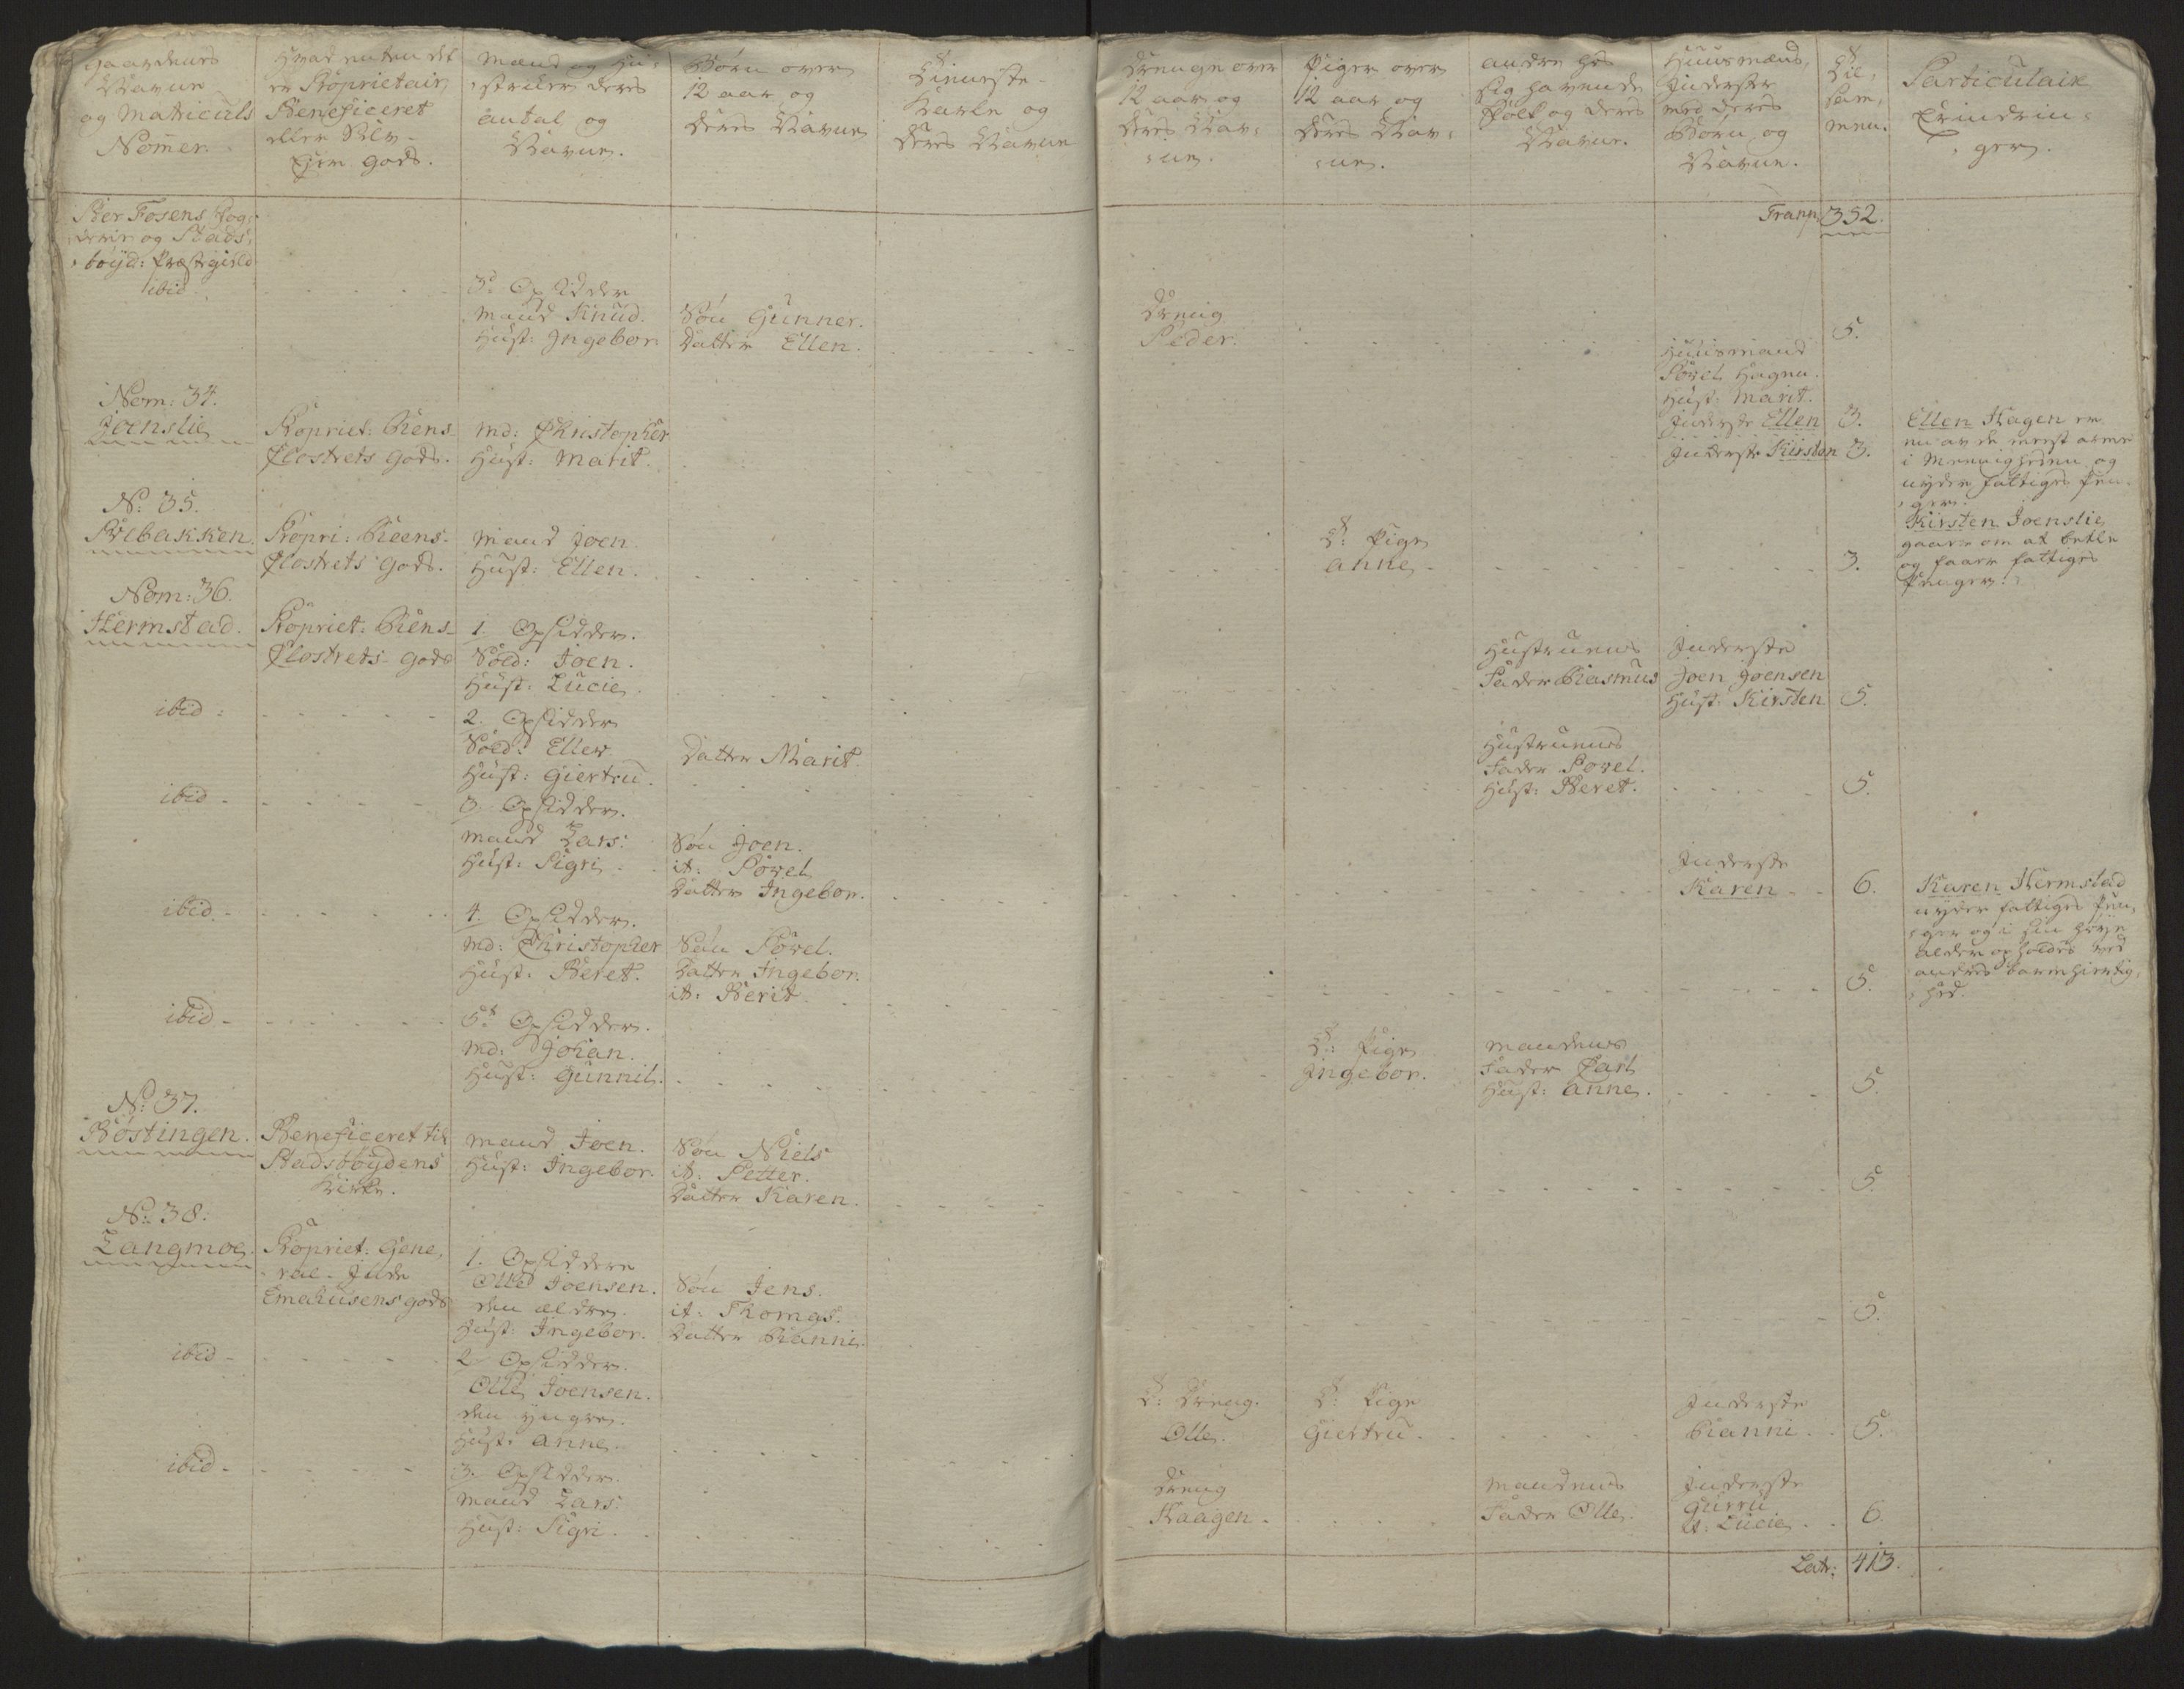 Gaardens
Navne
og Matriculs
Nømer.
Hvad enten det
er Proprietair,
Beneficeret
eller Selv-
Ejer gods.
Mænd og Hu-
struer deres
antal og
Navne.
Børn over
12 aar og
deres Navne
Tieneste-
Karle og
deres Navne
Drenge over
12 aar og
deres Nav-
ne.
Piger over
12 aar og
deres Nav-
ne.
andre hos
sig havende
Folk og deres
Navne.
Huusmænd,
Inderster
med deres
Børn og
Navne.
Til-
sam-
men.
Particulair
Erindrin-
ger.
Per Fosens Fog-
derie og Stads-
bøyd: Præstegield
ibid
Transp: 352.
3d Opsidder
Mand Knud.
Hust: Ingebor.
Søn Gunner.
Datter Ellen.
Dreng
Peder.
5.
Nom: 34.
Joenslie
Propriet: Reens
Closters Gods.
Md: Christopher
Hust: Marit.
Huusmand
Povel Hagen.
Hust: Marit.
Inderste Ellen 3.
Inderste Kirsten 3.
Ellen Hagen er
en av de meest arme
i Menigheden og
nyder fattiges Pen-
ger.
Kirsten Joenslie
gaar om at betle
og faaer fattiges
Penger.
N: 35.
Brebakken.
Propri: Reens-
Closters Gods.
Mand Joen
Hust: Ellen.
T: Pige
Anne
3.
Nom: 36.
Hermstad.
Propriet: Reens-
Closters Gods
1. Opsidder.
Sold: Joen.
Hust: Lucie
Hustruens
Fader Rasmus
Inderste
Joen Joensen
Hust: Kirsten
5.
ibid:
2. Opsidder
Sold: Ellev
Hust: Giertru.
Datter Marit.
Hustruens
Fader Povel.
Hust: Beret.
5.
ibid
3. Opsidder.
Mand Lars:
Hust: Sigri
Søn Joen.
it: Povel
Datter Ingebor.
Inderste
Karen
6.
Karen Hermstad
nyder fattiges Pen-
ger og i sin høye
alder opholdes ved
andres Barmhiertig-
hed.
ibid.
4. Opsidder.
Md: Christopher
Hust: Beret.
Søn Povel.
Datter Ingebor.
it: Berit
5.
ibid
5t Opsidder.
Md: Johan.
Hust: Gunnil.
T: Pige
Ingebor.
Mandens
Fader Carl
Hust: Anne.
5.
N: 37.
Røstingen.
Beneficeret til
Stadsbøydens
Kirke.
Mand Joen.
Hust: Ingebor.
Søn Niels
it: Petter.
Datter Karen.
5.
N: 38.
Langmoe.
Propriet: Gene-
ral
Emahusens gods
1. Opsidder
Olle Joensen.
den ældre.
Hust: Ingebor.
Søn Jens.
it: Thomas.
Datter Ranni.
5.
ibid
2. Opsidder.
Olle Joensen.
den yngre.
Hust: Anne.
T: Dreng.
Olle.
T: Pige
Giertru.
Inderste
Ranni
5.
ibid
3. Opsidder.
Mand Lars:
Hust: Sigri
Dreng
Haagen.
Mandens
Fader Olle.
Inderste
Gurru
it: Lucie
6.
Latr: 413.